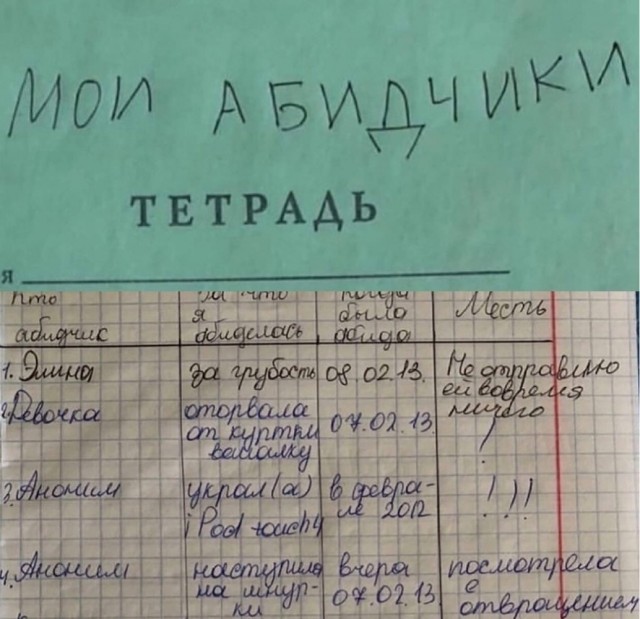 МОИ АБИДЧИКИ
ТЕТРАДЬ
я
Кто
абидчик
За что
я
абиделась
Когда
была
абида
Месть
1. Элина
за грубость
08.02.13.
Не отправлю
ей вовремя
ничего
2. Девочка
оторвала
от куртки
вашалку
07.02.13
!
3. Аноним
украл(а)
iPod touch 4
в февра-
ле 2012
!!!
4. Аноним
наступила
на шнур-
ки
вчера
07.02.13
посмотрела
с
отвращением